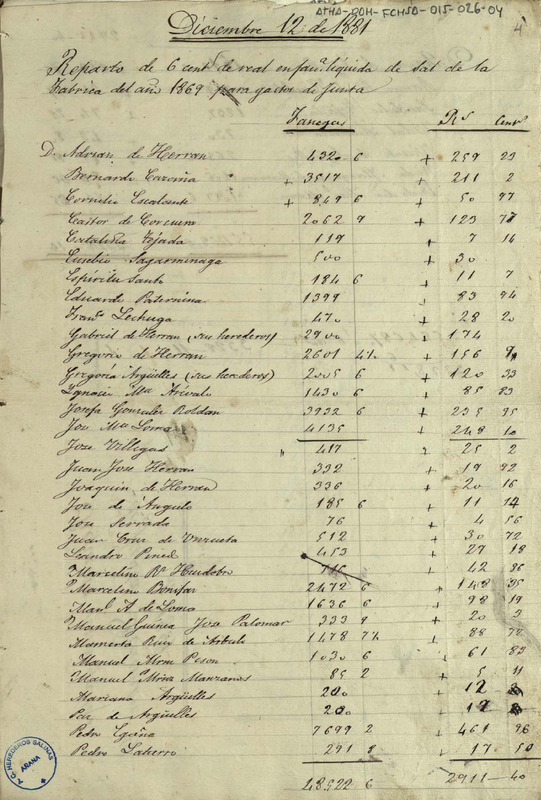 ATHA-DOH-FCHSA-015-026-04
4
Diciembre 12 de 1881
Reparto de 6 cent de real en fan.ª líquida de sal de la
Fabrica del año 1869 para gastos de Junta
Fanegas Rs Cents
D. Adrian de Herran 4320 6 + 259 23
Bernardo Careaga + 3517 + 211 2
Cornelio Escalante + 849 6 + 50 97
Castor de Corcuera 2062 9 + 123 77
Catalina Tejada 119 + 7 14
Eusebio Sagarminaga 500 + 30
Espíritu Santo 184 6 + 11 7
Eduardo Paternina 1399 + 83 94
Fran.co Lechuga 470 + 28 20
Gabriel de Herran (sus herederos) 2900 + 174
Gregorio de Herran 2601 4½ + 156
Gregoria Argüelles (sus herederos) 2005 6 + 120 33
Ignacio Ma Arévalo 1430 6 + 85 83
Josefa Gonzalez Roldan 3932 6 + 235 95
José Ma Loma 4135 + 248 10
José Villegas 417 25 2
Juan José Herran 332 + 19 92
Joaquin de Herran 336 + 20 16
José de Angulo 185 6 + 11 14
José Serrada 76 + 4 56
Juan Cruz de Unzueta 512 + 30 72
Leandro Pinedo 453 + 27 18
Marcelino Ba Huidobro 716 + 42 96
Marcelino Bonifaz 2472 6 + 148 35
Manl A. de Loma 1636 6 + 98 19
Manuel Guinea José Palomar 333 9 + 20 3
Mamerta Ruiz de 1478 7½ + 88 72
Manuel Peson 1030 6 + 61 83
Manuel Mria Manzanos 85 2 + 5 11
Mariano Argüelles 200 + 12
Paz de Argüelles 200 + 12
Pedro Egaña 7699 2 + 461 96
Pedro Laherro 291 8 + 17 50
48522 6 2911-40
A.G. HEREDEROS SALINAS
ARANA